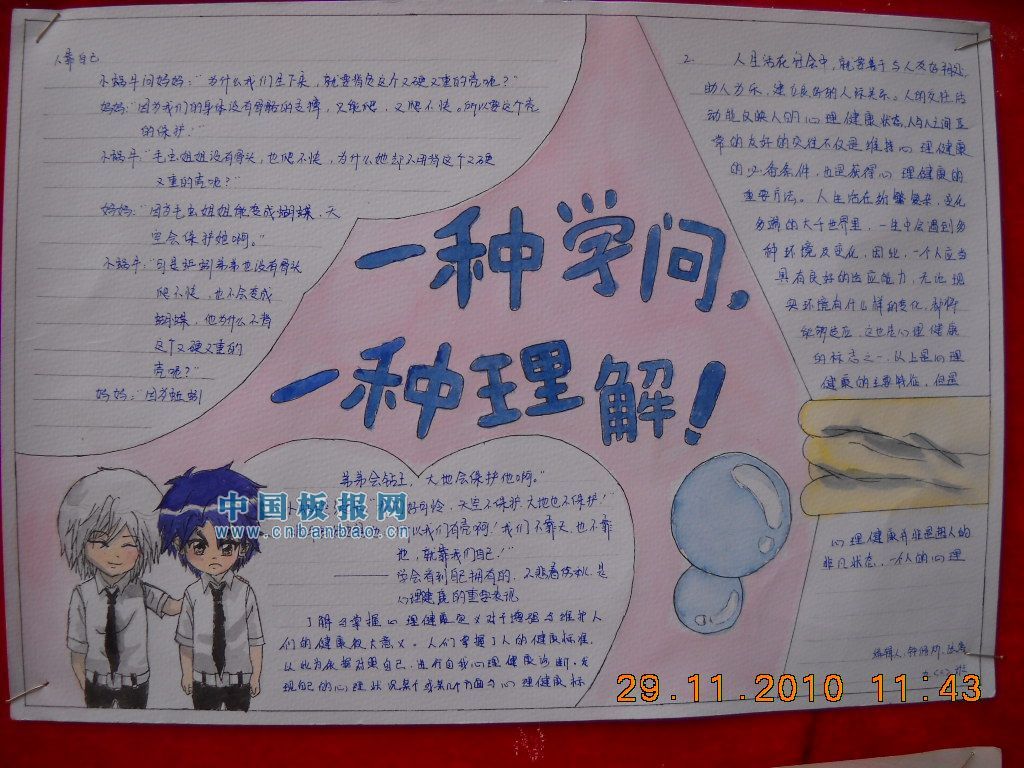 人靠自己
小蜗牛问妈妈："为什么我们生下来，就要背负这个又硬又重的壳呢？"
妈妈："因为我们的身体没有骨骼的支撑，只能爬，又爬不快。所以要这个壳
的保护！"
小蜗牛："毛虫姐姐没有骨头，也爬不快，为什么她却不用背这个又硬
又重的壳呢？"
妈妈："因为毛虫姐姐能变成蝴蝶，天
空会保护她啊。"
小蜗牛："可是蚯蚓弟弟也没有骨头
爬不快，也不会变成
蝴蝶，他为什么不背
这个又硬又重的
壳呢？"
妈妈："因为蚯蚓
一种学问，
一种理解！
弟弟会钻土，大地会保护他啊。"
好可怜，天空不保护，大地也不保护！"
以我们有壳啊！我们不靠天，也不靠
地，就靠我们自己！"
学会看到自己拥有的，不悲看伤秋，是
心理健康的重要表现
了解与掌握心理健康定义对于增强与维护人
们的健康很大意义。人们掌握了人的健康标准，
以此为依据对照自己，进行自我心理健康诊断。发
现自己的心理状况某个或某几个方面与心理健康标
2. 人生活在社会中，就要善于与人友好相处，
助人为乐，建立良好的人际关系。人的交往活
动能反映人的心理健康状态，人与人之间正
常的友好的交往不仅是维持心理健康
的必备条件，也是获得心理健康的
重要方法。人生活在纷繁复杂、变化
多端的大千世界里，一生中会遇到多
种环境及变化，因此，一个人应当
具有良好的适应能力，无论现
实环境有什么样的变化，都将
能够适应，这也是心理健康
的标志之一。以上是心理
健康的主要特征，但是
心理健康并非是超人的
非凡状态，一个人的心理
编辑人：
中国板报网
www.cnbanbao.cn
29.11.2010 11:43